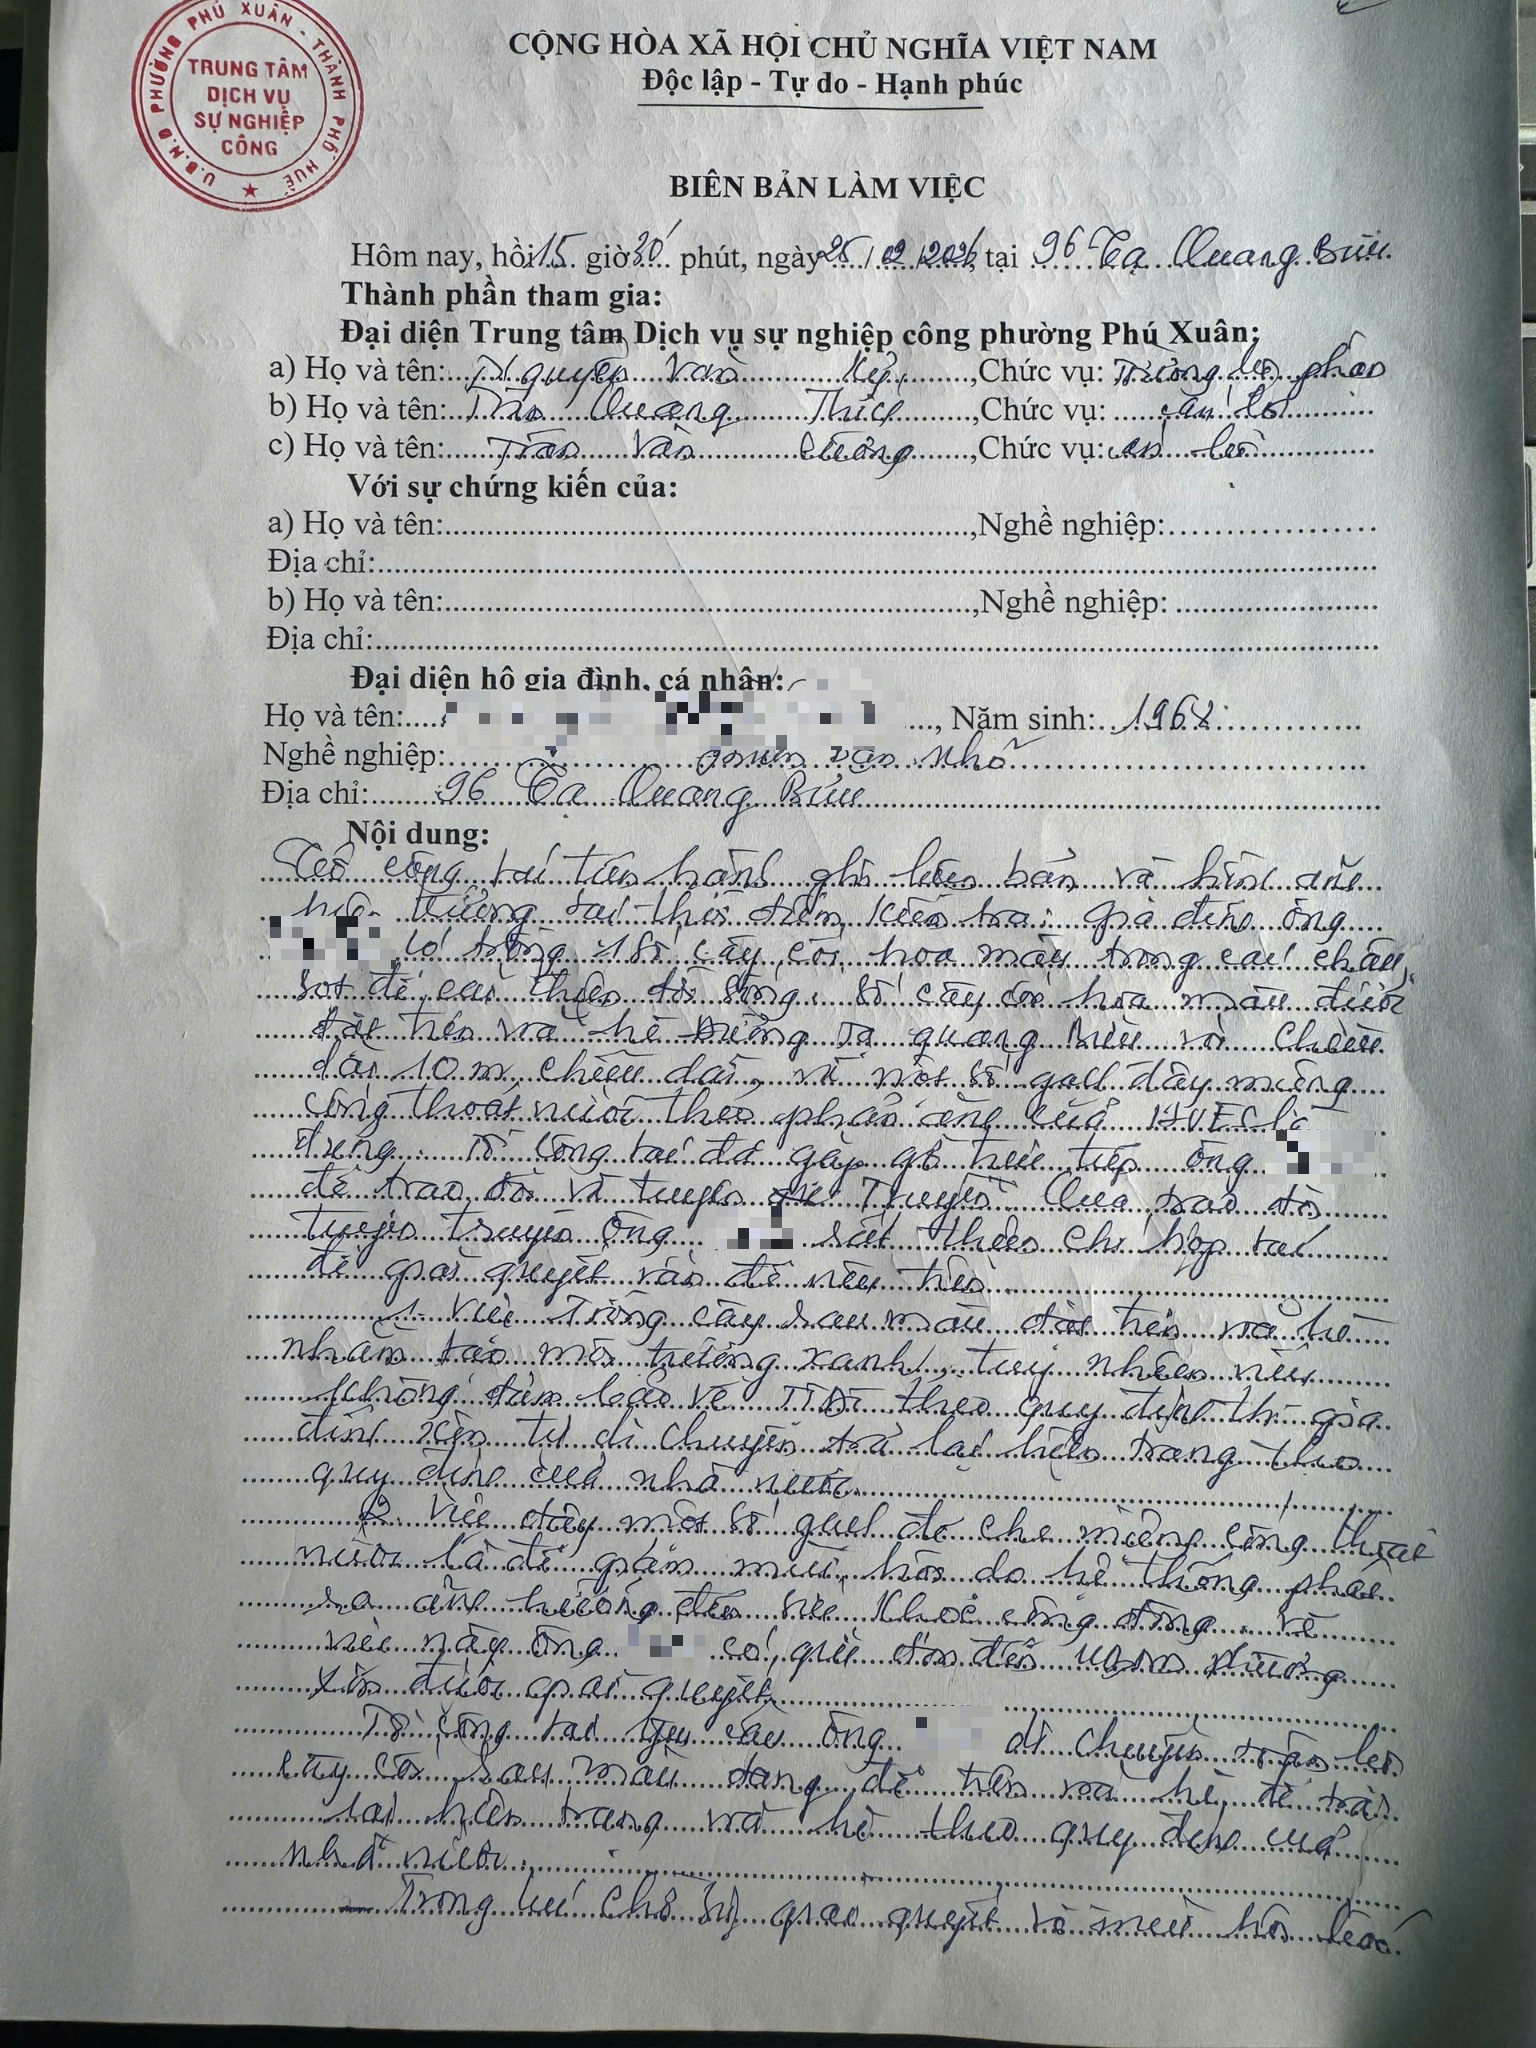 U.B.N.D PHƯỜNG PHÚ XUÂN - THÀNH PHỐ HUẾ
TRUNG TÂM
DỊCH VỤ
SỰ NGHIỆP
CÔNG
CỘNG HÒA XÃ HỘI CHỦ NGHĨA VIỆT NAM
Độc lập - Tự do - Hạnh phúc
BIÊN BẢN LÀM VIỆC
Hôm nay, hồi 15 giờ 30 phút, ngày 25/02/2026, tại 96 Tạ Quang Bửu
Thành phần tham gia:
Đại diện Trung tâm Dịch vụ sự nghiệp công phường Phú Xuân:
a) Họ và tên: Nguyễn Văn, Chức vụ: Trưởng bộ phận
b) Họ và tên: Quang, Chức vụ: cán bộ
c) Họ và tên: Trần Văn Cường, Chức vụ: cán bộ
Với sự chứng kiến của:
a) Họ và tên:, Nghề nghiệp:
Địa chỉ:
b) Họ và tên:, Nghề nghiệp:
Địa chỉ:
Đại diện hộ gia đình, cá nhân:
Họ và tên:, Năm sinh: 1968
Nghề nghiệp: buôn bán nhỏ
Địa chỉ: 96 Tạ Quang Bửu
Nội dung:
Tổ công tác tiến hành ghi biên bản và hình ảnh
hiện trường tại thời điểm kiểm tra: gia đình ông
có trồng 1 số cây cối, hoa màu trong các chậu,
sọt để cải thiện đời sống. Số cây cối hoa màu được
đặt trên vỉa hè đường Tạ Quang Bửu với chiều
dài 10 m chiều dài, và một số gạch đậy miệng
cống thoát nước theo phản ánh của HUEs là
đúng. Tổ công tác đã gặp gỡ trực tiếp ông
để trao đổi và tuyên truyền. Qua trao đổi
tuyên truyền ông rất thiện chí hợp tác
để giải quyết vấn đề nêu trên.
1. Việc trồng cây rau màu đặt trên vỉa hè
nhằm tạo môi trường xanh, tuy nhiên nếu
không đảm bảo về theo quy định thì gia
đình xin tự di chuyển trả lại hiện trạng theo
quy định của nhà nước.
2. Việc đậy một số gạch để che miệng cống thoát
nước là để giảm mùi hôi do hệ thống phát
ra ảnh hưởng đến sức khoẻ cộng đồng. Về
việc này ông có gửi đơn đến UBND phường
xin được giải quyết.
Tổ công tác yêu cầu ông di chuyển toàn bộ
cây cối rau màu đang để trên vỉa hè, để trả
lại hiện trạng vỉa hè theo quy định của
nhà nước.
- Trong lúc chờ xử giải quyết về mùi hôi